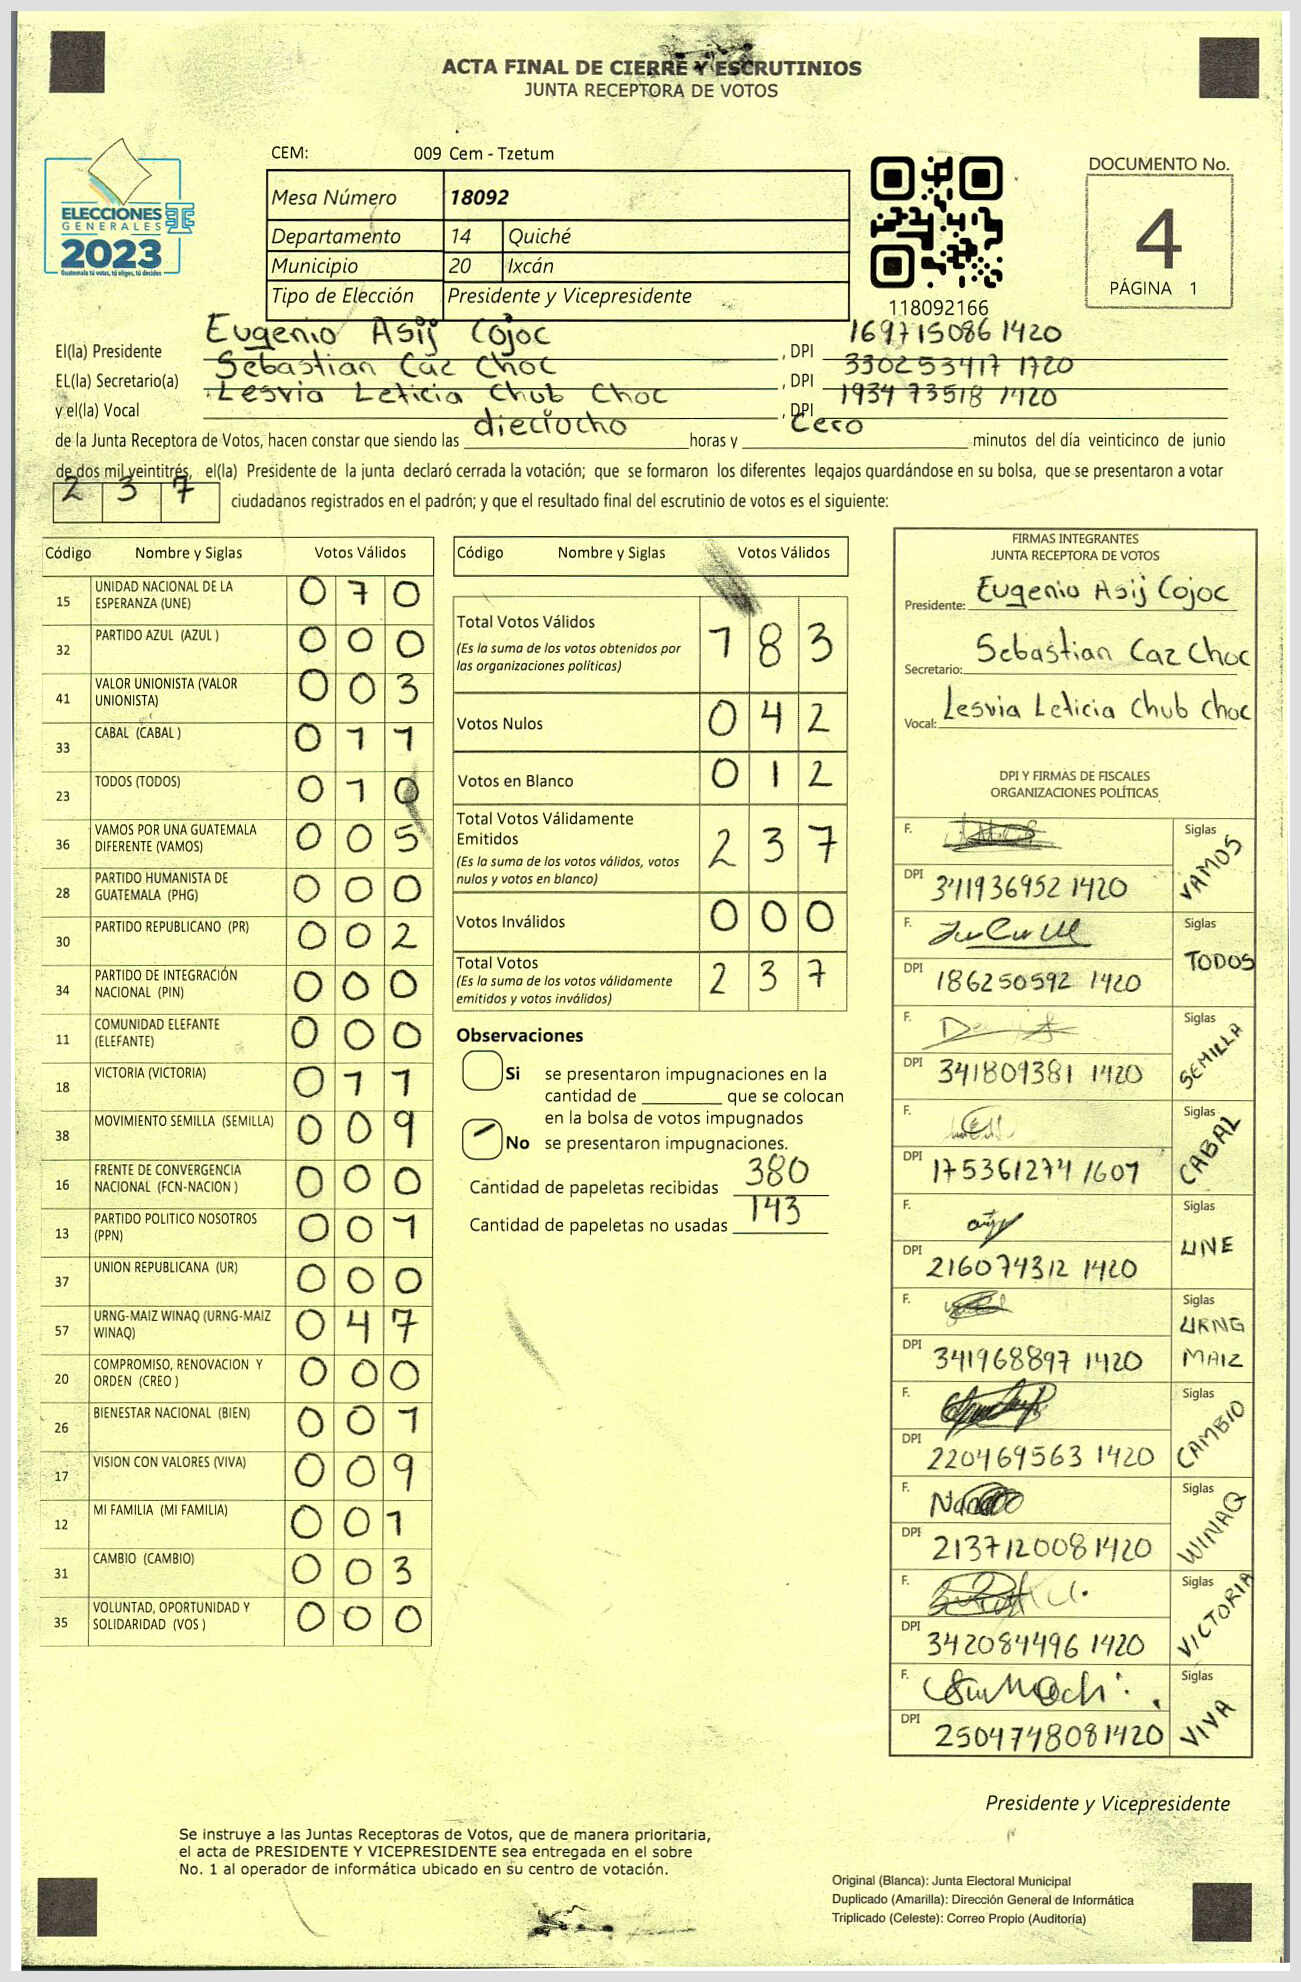 ACTA FINAL DE CIERRE Y ESCRUTINIOS
JUNTA RECEPTORA DE VOTOS
CEM: 009 Cem - Tzetum
Mesa Número 18092
Departamento 14 Quiché
Municipio 20 Ixcán
Tipo de Elección Presidente y Vicepresidente
ELECCIONES
GENERALES
2023
Guatemala tú votas, tú eliges, tú decides
118092166
DOCUMENTO No.
4
PÁGINA 1
El(la) Presidente Eugenio Asij Cojoc , DPI 169715086 1420
EL(la) Secretario(a) Sebastian Caz Choc , DPI 330253417 1720
y el(la) Vocal Lesvia Leticia Chub Choc , DPI 1934 73518 1420
de la Junta Receptora de Votos, hacen constar que siendo las dieciocho horas y Cero minutos del día veinticinco de junio
de dos mil veintitrés, el(la) Presidente de la junta declaró cerrada la votación; que se formaron los diferentes legajos guardándose en su bolsa, que se presentaron a votar
2 3 7 ciudadanos registrados en el padrón; y que el resultado final del escrutinio de votos es el siguiente:
Código Nombre y Siglas Votos Válidos
15 UNIDAD NACIONAL DE LA ESPERANZA (UNE) 0 7 0
32 PARTIDO AZUL (AZUL ) 0 0 0
41 VALOR UNIONISTA (VALOR UNIONISTA) 0 0 3
33 CABAL (CABAL ) 0 1 1
23 TODOS (TODOS) 0 1 0
36 VAMOS POR UNA GUATEMALA DIFERENTE (VAMOS) 0 0 5
28 PARTIDO HUMANISTA DE GUATEMALA (PHG) 0 0 0
30 PARTIDO REPUBLICANO (PR) 0 0 2
34 PARTIDO DE INTEGRACIÓN NACIONAL (PIN) 0 0 0
11 COMUNIDAD ELEFANTE (ELEFANTE) 0 0 0
18 VICTORIA (VICTORIA) 0 1 1
38 MOVIMIENTO SEMILLA (SEMILLA) 0 0 9
16 FRENTE DE CONVERGENCIA NACIONAL (FCN-NACION ) 0 0 0
13 PARTIDO POLITICO NOSOTROS (PPN) 0 0 1
37 UNION REPUBLICANA (UR) 0 0 0
57 URNG-MAIZ WINAQ (URNG-MAIZ WINAQ) 0 4 7
20 COMPROMISO, RENOVACION Y ORDEN (CREO ) 0 0 0
26 BIENESTAR NACIONAL (BIEN) 0 0 1
17 VISION CON VALORES (VIVA) 0 0 9
12 MI FAMILIA (MI FAMILIA) 0 0 1
31 CAMBIO (CAMBIO) 0 0 3
35 VOLUNTAD, OPORTUNIDAD Y SOLIDARIDAD (VOS ) 0 0 0
Código Nombre y Siglas Votos Válidos
Total Votos Válidos 1 8 3
(Es la suma de los votos obtenidos por
las organizaciones políticas)
Votos Nulos 0 4 2
Votos en Blanco 0 1 2
Total Votos Válidamente
Emitidos 2 3 7
(Es la suma de los votos válidos, votos
nulos y votos en blanco)
Votos Inválidos 0 0 0
Total Votos 2 3 7
(Es la suma de los votos válidamente
emitidos y votos inválidos)
Observaciones
Si se presentaron impugnaciones en la
cantidad de ________ que se colocan
en la bolsa de votos impugnados
No se presentaron impugnaciones.
Cantidad de papeletas recibidas 380
Cantidad de papeletas no usadas 143
FIRMAS INTEGRANTES
JUNTA RECEPTORA DE VOTOS
Presidente: Eugenio Asij Cojoc
Secretario: Sebastian Caz Choc
Vocal: Lesvia Leticia Chub Choc
DPI Y FIRMAS DE FISCALES
ORGANIZACIONES POLÍTICAS
F. Siglas VAMOS
DPI 341936952 1420
F. Siglas TODOS
DPI 186250592 1420
F. Siglas SEMILLA
DPI 341809381 1420
F. Siglas CABAL
DPI 175361274 1607
F. Siglas UNE
DPI 216074312 1420
F. Siglas URNG MAIZ
DPI 341968897 1420
F. Siglas CAMBIO
DPI 220469563 1420
F. Siglas WINAQ
DPI 213712008 1420
F. Siglas VICTORIA
DPI 342084496 1420
F. Siglas VIVA
DPI 250474808 1420
Presidente y Vicepresidente
Se instruye a las Juntas Receptoras de Votos, que de manera prioritaria,
el acta de PRESIDENTE Y VICEPRESIDENTE sea entregada en el sobre
No. 1 al operador de informática ubicado en su centro de votación.
Original (Blanca): Junta Electoral Municipal
Duplicado (Amarilla): Dirección General de Informática
Triplicado (Celeste): Correo Propio (Auditoría)